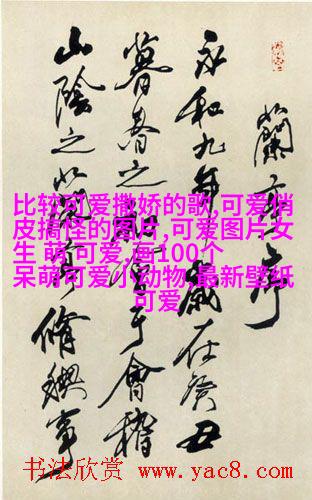 蘭亭序
永和九年歲在癸丑
暮春之初會于會稽
山陰之蘭亭脩禊事
比较可爱撒娇的歌,可爱俏
皮搞怪的图片,可爱图片女
生 萌 可爱,画100个
呆萌可爱小动物,最新壁纸
可爱
书法欣赏 www.yac8.com